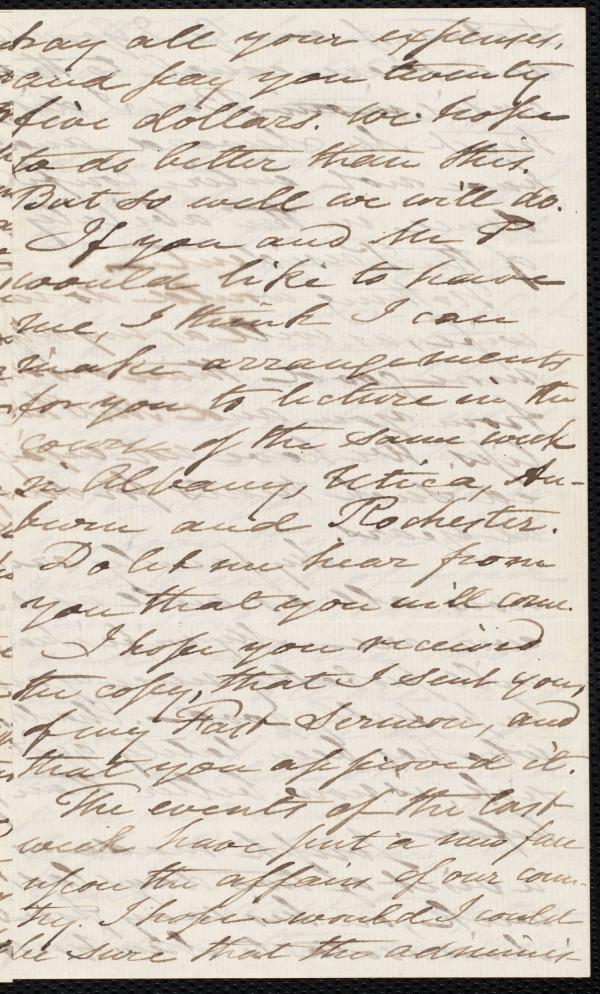 pay all your expenses,
and pay you twenty
five dollars. We hope
to do better than this.
But so well we will do.
If you and Mr P
would like to have
me, I think I can
make arrangements
for you to lecture in the
course of the same week
in Albany, Utica, Au-
burn and Rochester.
Do let me hear from
you that you will come.
I hope you received
the copy, that I sent you,
of my Fast Sermon, and
that you approved it.
The events of the last
week have put a new face
upon the affairs of our coun-
try. I hope would I could
be sure that the adminis-